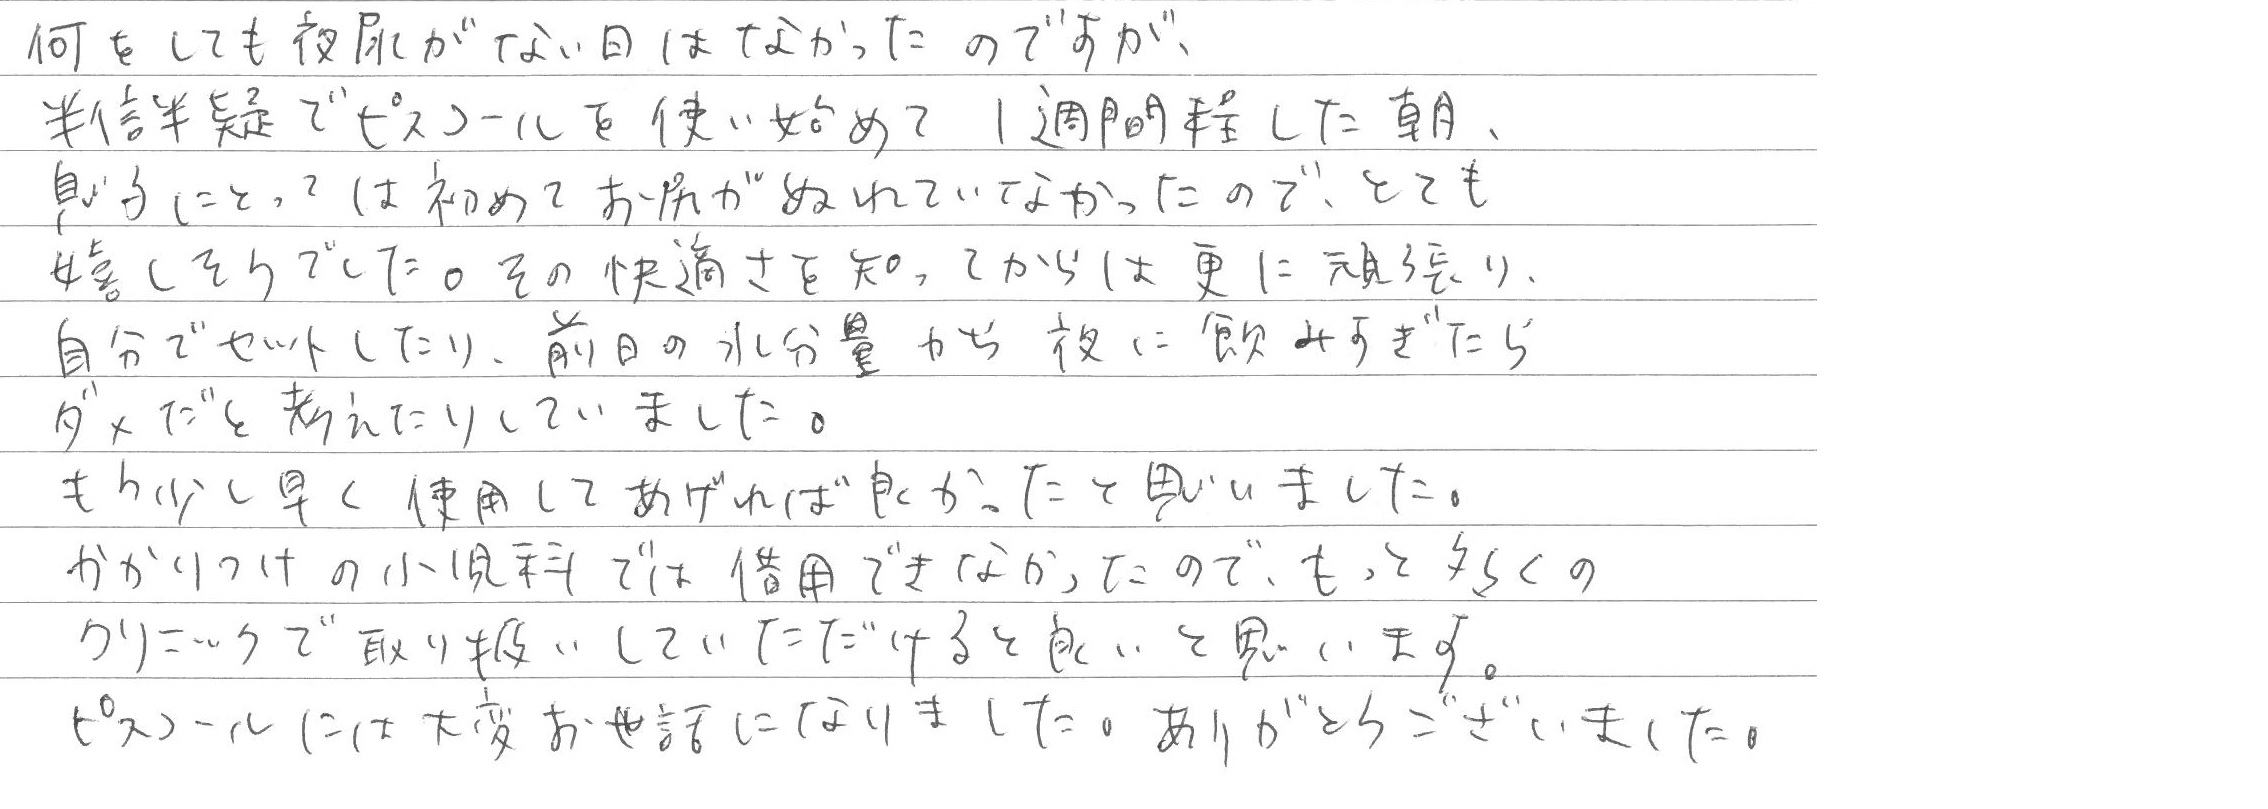 何をしても夜尿がない日はなかったのですが、
半信半疑でピスコールを使い始めて1週間程した朝、
息子にとっては初めてお尻がぬれていなかったので、とても
嬉しそうでした。その快適さを知ってからは更に頑張り、
自分でセットしたり、前日の水分量から夜に飲みすぎたら
ダメだと考えたりしていました。
もう少し早く使用してあげれば良かったと思いました。
かかりつけの小児科では借用できなかったので、もっと多くの
クリニックで取り扱いしていただけると良いと思います。
ピスコールには大変お世話になりました。ありがとうございました。